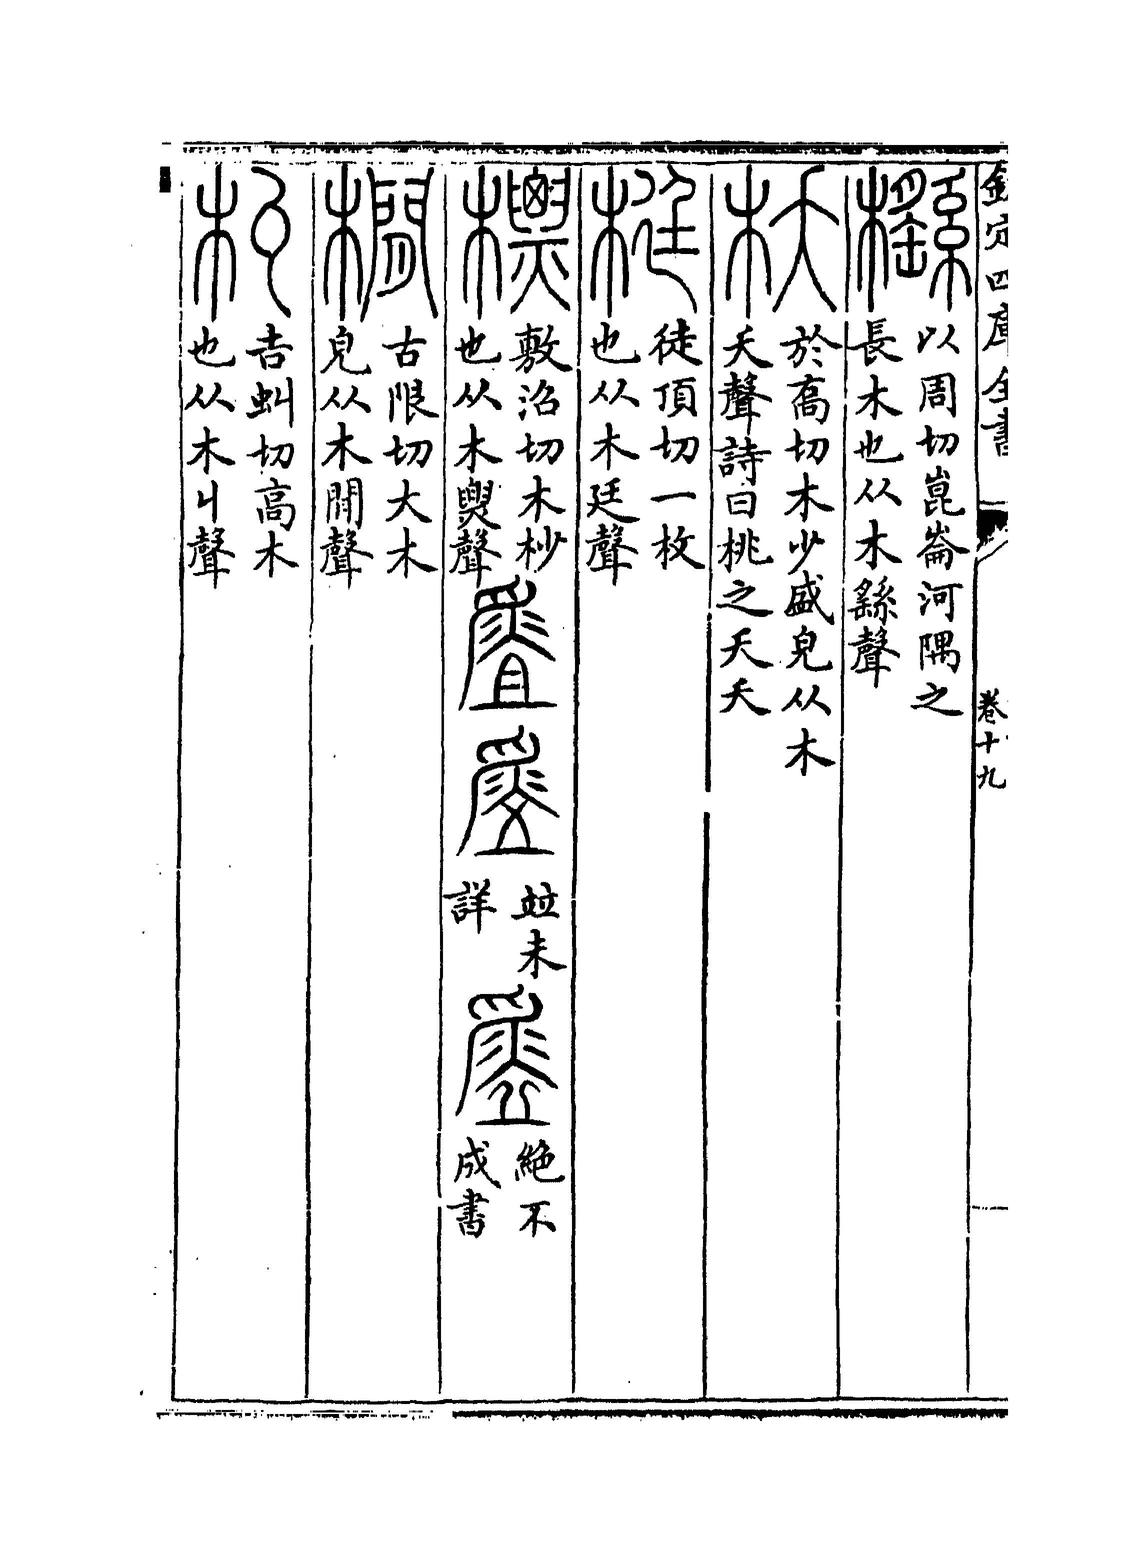 欽定四庫全書
卷十九
櫾
以周切崑崙河隅之
長木也从木繇聲
枖
於喬切木少盛皃从木
夭聲詩曰桃之夭夭
梃
徒頂切一枚
也从木廷聲
標
敷沼切木杪
也从木㶾聲
竝未
詳
絶不
成書
橺
古限切大木
皃从木閒聲
朻
吉虯切高木
也从木丩聲